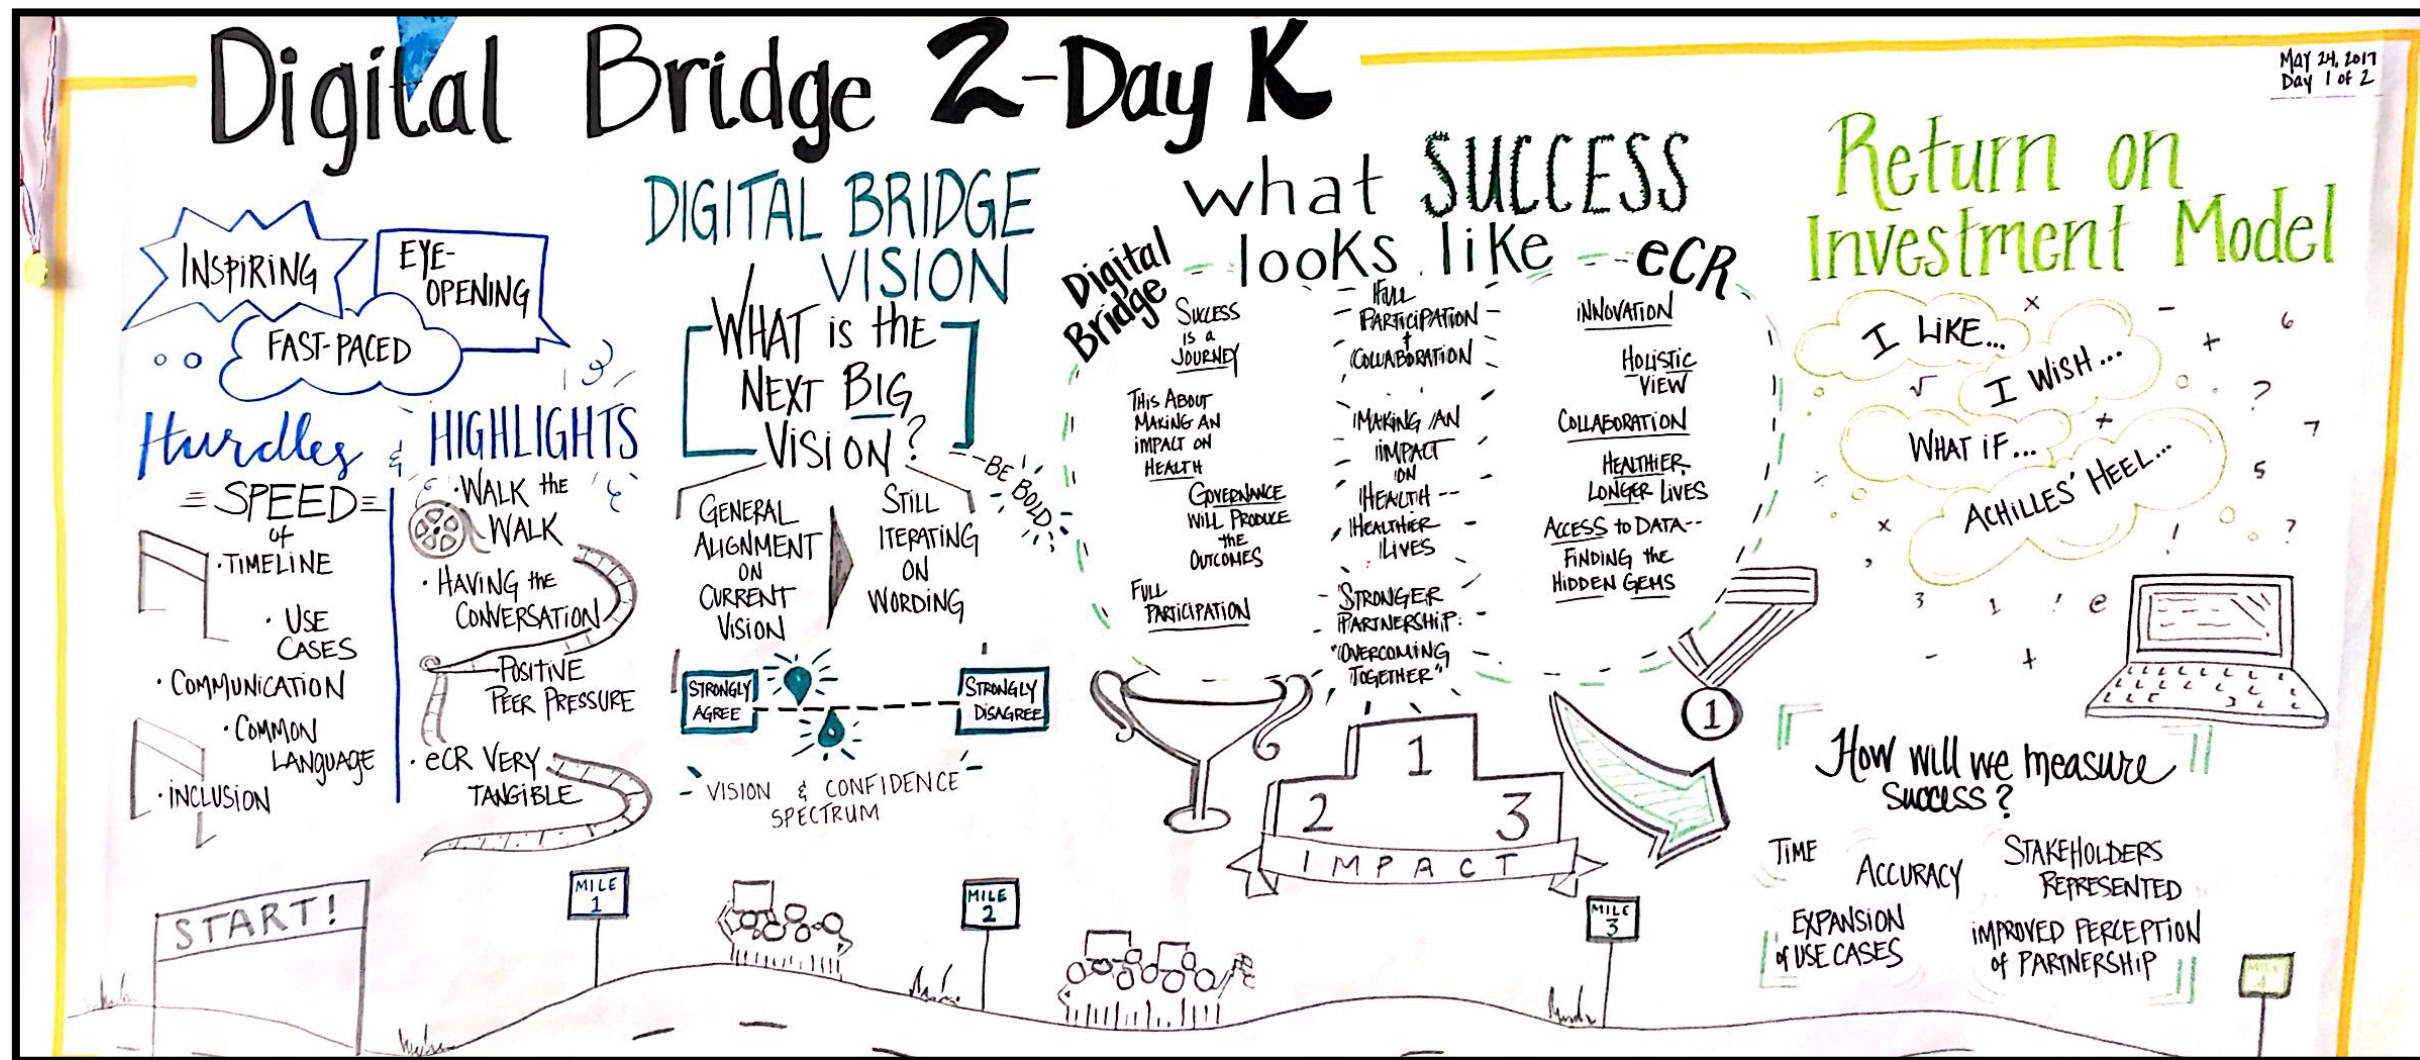 Digital Bridge 2-Day K
May 24, 2017
Day 1 of 2
INSPIRING
EYE-
OPENING
FAST-PACED
Hurdles & HIGHLIGHTS
SPEED
of
· TIMELINE
· USE
CASES
· COMMUNICATION
· COMMON
LANGUAGE
· INCLUSION
· WALK the
WALK
· HAVING the
CONVERSATION
POSITIVE
PEER PRESSURE
· eCR VERY
TANGIBLE
DIGITAL BRIDGE
VISION
WHAT is the
NEXT BIG
VISION?
BE BOLD
GENERAL
ALIGNMENT
ON
CURRENT
VISION
STILL
ITERATING
ON
WORDING
STRONGLY
AGREE
STRONGLY
DISAGREE
VISION & CONFIDENCE
SPECTRUM
what SUCCESS
looks like
Digital
Bridge
eCR
SUCCESS
is a
JOURNEY
THIS ABOUT
MAKING AN
IMPACT ON
HEALTH
GOVERNANCE
WILL PRODUCE
the
OUTCOMES
FULL
PARTICIPATION
FULL
PARTICIPATION
+
COLLABORATION
MAKING AN
IMPACT
ON
HEALTH --
HEALTHIER
LIVES
STRONGER
PARTNERSHIP:
"OVERCOMING
TOGETHER"
INNOVATION
HOLISTIC
VIEW
COLLABORATION
HEALTHIER,
LONGER LIVES
ACCESS to DATA--
FINDING the
HIDDEN GEMS
1
2
3
IMPACT
1
Return on
Investment Model
I LIKE...
I WISH...
WHAT IF...
ACHILLES' HEEL...
x
-
6
+
√
?
+
7
5
x
!
?
3
1
!
e
-
+
How will we measure
success?
TIME
ACCURACY
STAKEHOLDERS
REPRESENTED
EXPANSION
of USE CASES
IMPROVED PERCEPTION
of PARTNERSHIP
START!
MILE
1
MILE
2
MILE
3
MILE
4